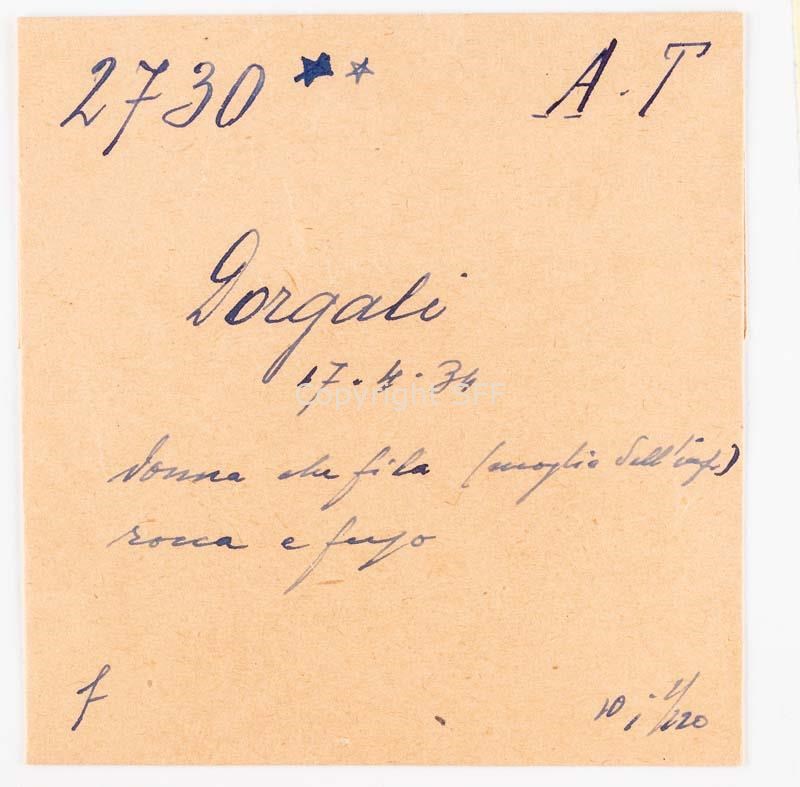 2730 ★☆ A.T
Dorgali
17.4.34
Copyright SFF
donna che fila (moglie dell'inf)
rocca e fuso
f
10 i 1/220